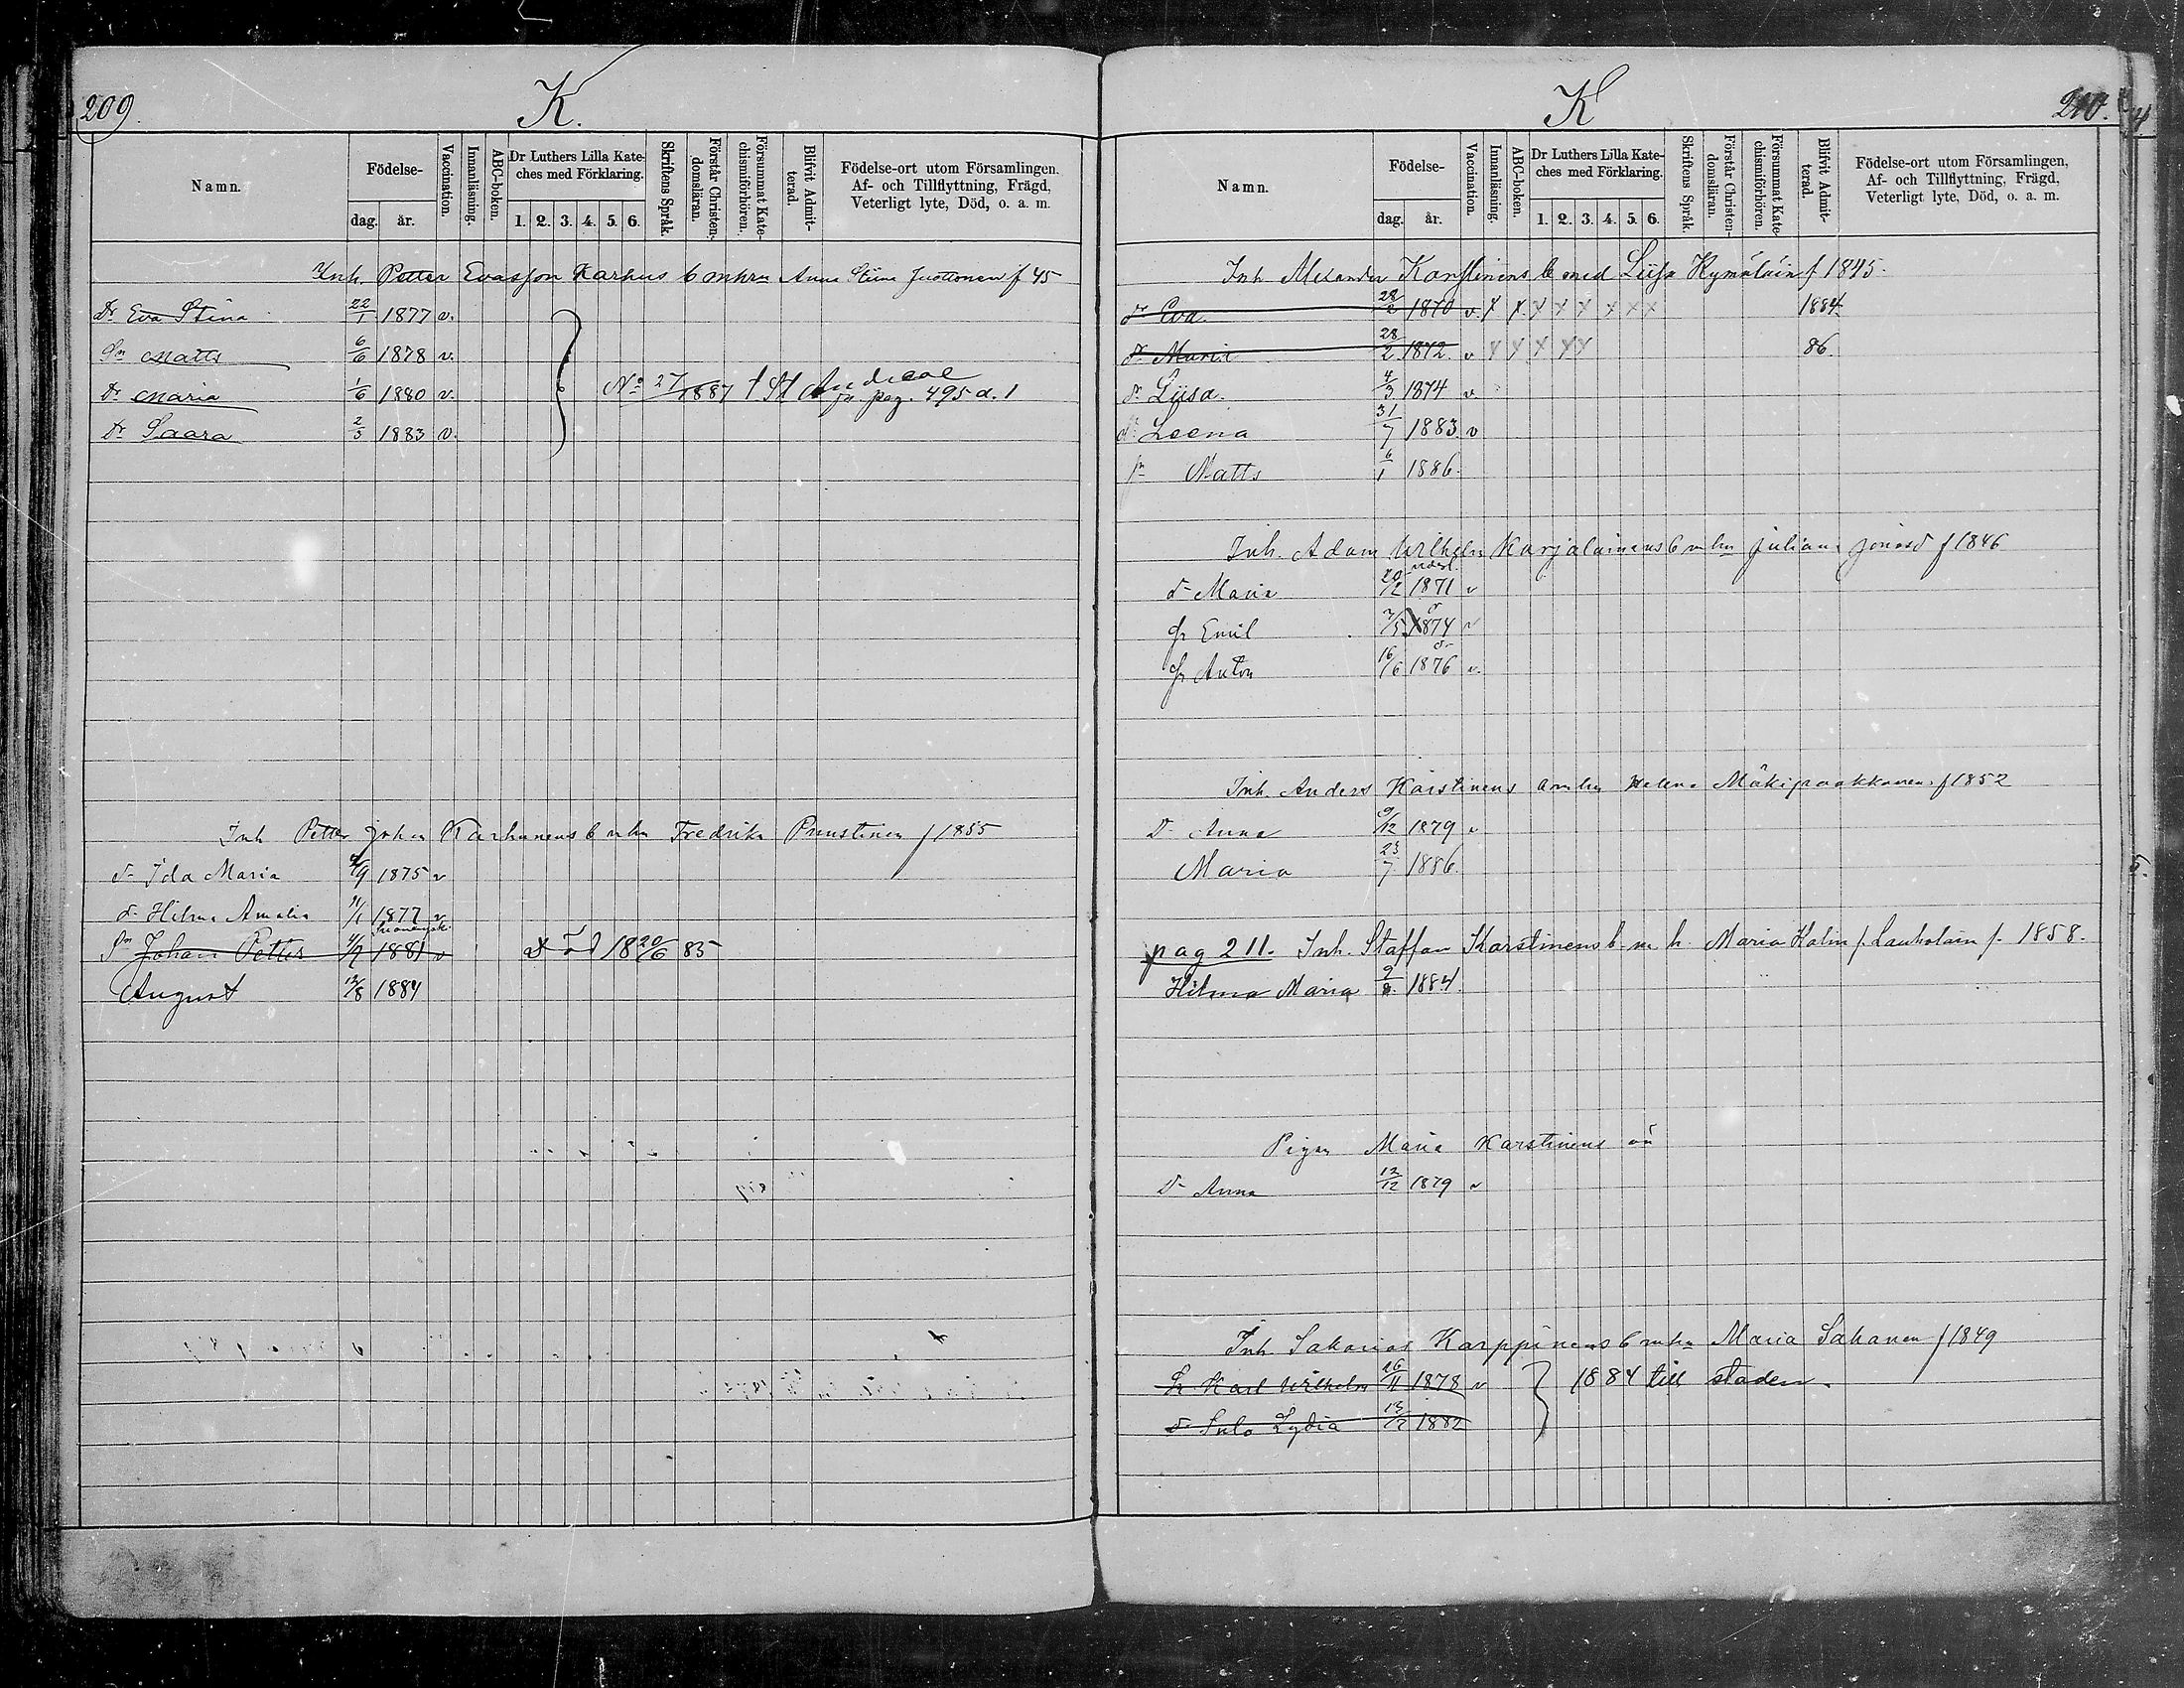 209.
K.
Namn.
Födelse-
dag. år.
Vaccination.
Innanläsning.
ABC-boken.
Dr Luthers Lilla Kate-
ches med Förklaring.
1. 2. 3. 4. 5. 6.
Skriftens Språk.
Förstår Christen-
domsläran.
Försummat Kate-
chismiförhören.
Blifvit Admit-
terad.
Födelse-ort utom Församlingen.
Af- och Tillflyttning, Frägd,
Veterligt lyte, Död, o. a. m.
Inh. Petter Evasson Karhus b mhru Anna Stina Juottonen f 45
Dr Eva Stina 22/1 1877 v.
Sn Matts 6/6 1878 v.
Dr Maria 1/6 1880 v. No 27/1887 t St Andreae
pag. 495 a. 1
Dr Saara 2/3 1883 v.
Inh Petter Johan Karhunens b mhu Fredrika Prustinen f 1855
d. Ida Maria /9 1875 v
d. Hilma Amalia 11/1 1877 v
Sn Johan Petter 4/9 1881 v Död 18 20/6 85
August 12/8 1884
K
210.
Namn.
Födelse-
dag. år.
Vaccination.
Innanläsning.
ABC-boken.
Dr Luthers Lilla Kate-
ches med Förklaring.
1. 2. 3. 4. 5. 6.
Skriftens Språk.
Förstår Christen-
domsläran.
Försummat Kate-
chismiförhören.
Blifvit Admit-
terad.
Födelse-ort utom Församlingen,
Af- och Tillflyttning, Frägd,
Veterligt lyte, Död, o. a. m.
Inh Alexander Karstinens b med Liisa Kymäläin f 1845.
dr Eva. 28/2 1870 v. x x. x x x x x x 1884.
d. Maria 28/2 1872. v x x x x x 86.
d. Liisa. 4/3 1874 v
dr Leena 31/7 1883 v
sn Matts 6/1 1886.
Inh. Adam Wilhelm Karjalainens b mhu Juliana Jonasd f 1846
d. Maria 20/2 1871 v
Emil 7/5 1874 v
Anton 16/6 1876 v.
Inh. Anders Karstinens Helena Mäkipaakkanen f 1852
D. Anna 9/12 1879 v
Maria 23/7 1886.
pag 211. Inh. Staffan Karstinens b. m. h. Maria Kalin f. Lauholain f. 1858.
Hilma Maria 9/8. 1884.
Pigan Maria Karstinens oä
D. Anna 12/12 1879 v
Inh. Sakarias Karppinens b mhu Maria Sahanen f 1849
Karl Wilhelm 26/11 1878 v 1884 till staden.
d. Sulo Lydia 13/7 1882
5.